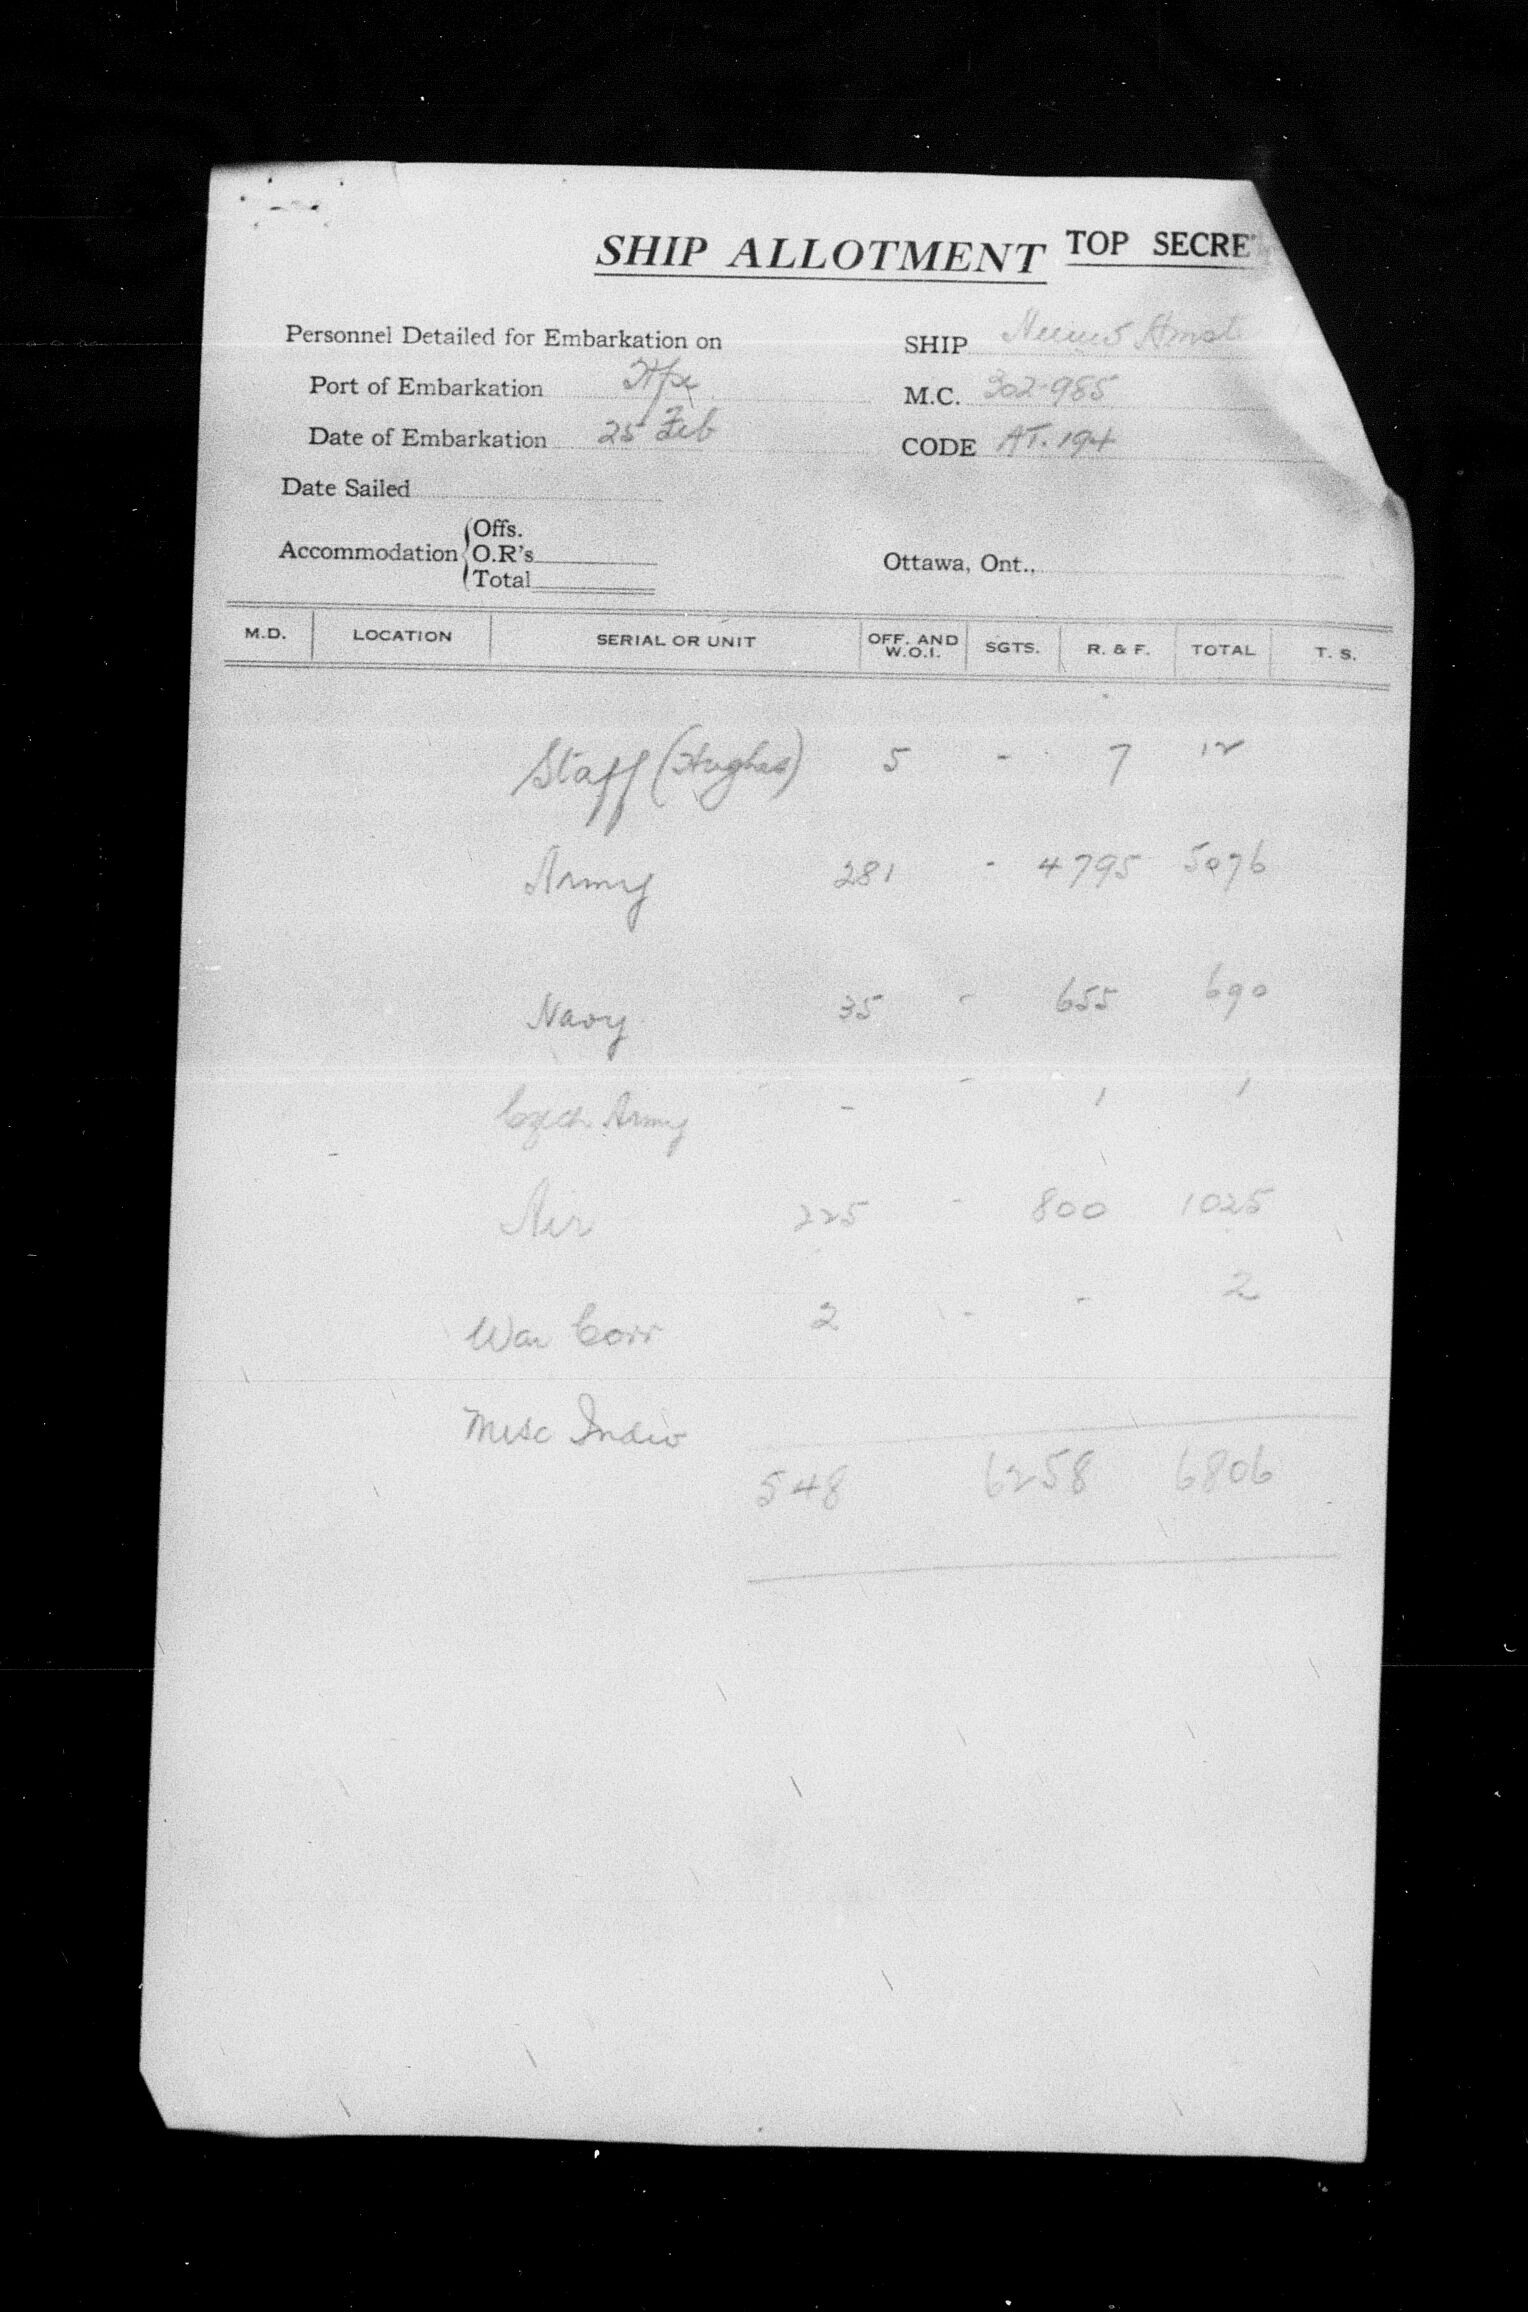 SHIP ALLOTMENT TOP SECRE
Personnel Detailed for Embarkation on SHIP Nieuw Amst.
Port of Embarkation Hfx M.C. 302-985
Date of Embarkation 25 Feb CODE AT. 194
Date Sailed
Accommodation { Offs.
O.R's
Total
Ottawa, Ont.,
M.D. LOCATION SERIAL OR UNIT OFF. AND W.O.I. SGTS. R. & F. TOTAL T. S.
Staff (Hughes) 5 - 7 12
Army 281 - 4795 5076
Navy 35 - 655 690
Czech Army - - 1 1
Air 225 - 800 1025
War Corr 2 - - 2
Misc Indiv
548 6258 6806